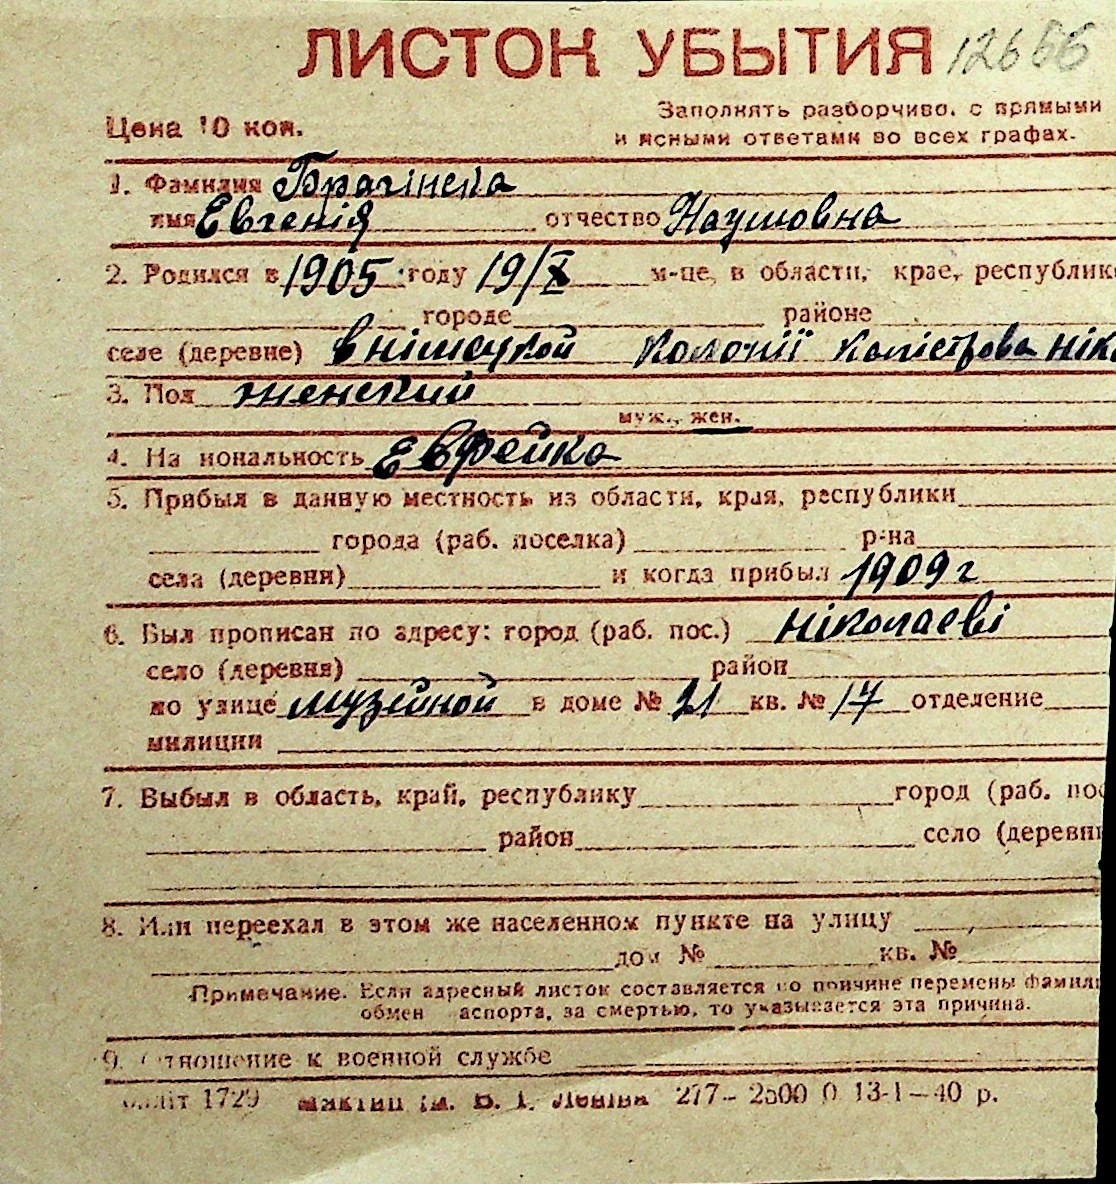 ЛИСТОК УБЫТИЯ 12666
Заполнять разборчиво, с прямыми
Цена 10 коп.
и ясными ответами во всех графах.
1. Фамилия Брагінска
имя Евгенія отчество Наумовна
2. Родился в 1905 году 19/X м-це, в области, крае, республике
городе районе
селе (деревне) внімецкой колонії
3. Пол женский
муж., жен.
4. Национальность еврейка
5. Прибыл в данную местность из области, края, республики
города (раб. поселка) р-на
села (деревни) и когда прибыл 1909 г
6. Был прописан по адресу: город (раб. пос.) Ніколаеві
село (деревня) район
по улице музейной в доме № 21 кв. № 17 отделение
милиции
7. Выбыл в область, край, республику город (раб. пос
район село (деревн
8. Или переехал в этом же населенном пункте на улицу
дом № кв. №
Примечание. Если адресный листок составляется по причине перемены фамил
обмен аспорта, за смертью, то указывается эта причина.
9. Отношение к военной службе
1729 ім. В. І. Леніна 277–2500 0 13-1–40 р.